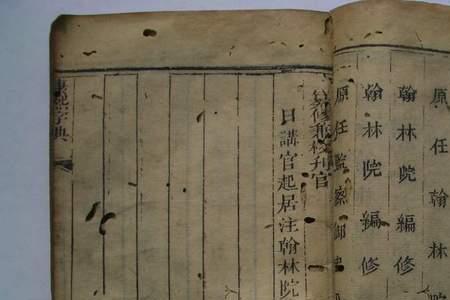 原任翰林院
翰林院編修
翰林院編修
原任監察御
纂修兼校刊官
日講官起居注翰林院
康熙字典